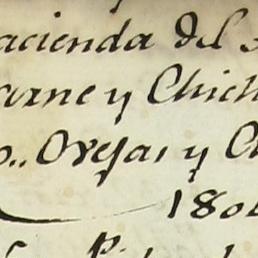 acienda del
arne y Chich
o.. Ovejas y C
180